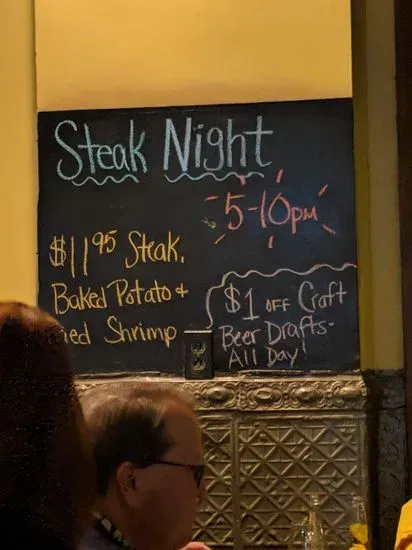 Steak Night
5-10pm
$11.95 Steak,
Baked Potato +
Shrimp
$1 OFF Craft
Beer Drafts-
All Day!